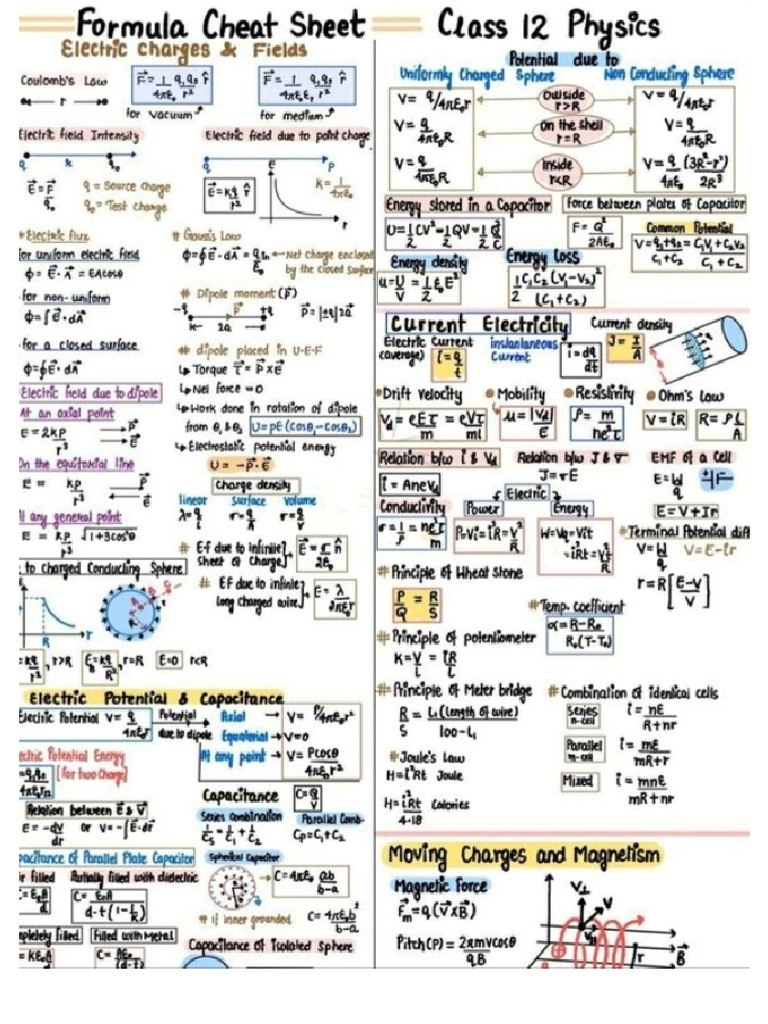 Formula Cheat Sheet
Class 12 Physics
Electric Charges & Fields
Coulomb's Law
F⃗ = 1/4πε₀ q₁q₂/r² r̂
for vacuum
for medium
r
Electric field Intensity
E⃗ = F⃗/q₀
q = Source charge
q₀ = Test charge
Electric field due to point charge
E⃗ = kq/r² r̂
K = 1/4πε₀
# Electric flux
for uniform electric field
ϕ = E⃗·A⃗ = EAcosθ
for non-uniform
ϕ = ∫E⃗·dA⃗
for a closed surface
ϕ = ∮E⃗·dA⃗
# Gauss's Law
Net charge enclosed
by the closed surface
# Dipole moment (p⃗)
-q +q
2a
# dipole placed in U.E.F
↳ Torque τ⃗ = P⃗ × E⃗
↳ Net force = 0
↳ Work done in rotation of dipole
from θ₁ & θ₂ U = PE(cosθ₁ - cosθ₂)
↳ Electrostatic potential energy
U = -P⃗·E⃗
Electric field due to dipole
At an axial point
E = 2KP/r³
On the equitorial line
E = KP/r³
any general point
E = KP/r³ √1+3cos²θ
Charge density
linear surface volume
# E.f due to infinite
Sheet of Charge
# EF due to infinite
long charged wire
to charged Conducting Sphere
R r
, r>R
, r=R
E=0 r<R
Electric Potential & Capacitance
Electric Potential V = q/4πε₀r
Potential
due to dipole
Axial → V = P/4πε₀r²
Equatorial → V=0
At any point → V = Pcosθ/4πε₀r²
Potential Energy
(for two charge)
Relation between E⃗ & V
E = -dV/dr or V = -∫E⃗·dr⃗
Capacitance C = Q/V
Series Combination
1/Cs = 1/C₁ + 1/C₂
Parallel Comb-
Cp = C₁+C₂
Capacitance of Parallel Plate Capacitor
filled
Partially filled with dielectric
Filled with Metal
Spherical Capacitor
C = 4πε₀ ab/b-a
# if inner grounded. C = 4πε₀b²/b-a
Capacitance of Isolated Sphere
Potential due to
Uniformly Charged Sphere
Non Conducting Sphere
V = q/4πε₀r
Outside r>R
V = q/4πε₀r
V = q/4πε₀R
On the shell r=R
V = q/4πε₀R
V = q/4πε₀R
Inside r<R
V = q/4πε₀ (3R²-r²)/2R³
Energy stored in a Capacitor
U = 1/2 CV² = 1/2 QV = 1/2 Q²/C
Force between plates of Capacitor
F = Q²/2Aε₀
Common Potential
V = q₁+q₂/C₁+C₂ = C₁V₁+C₂V₂/C₁+C₂
Energy density
u = U/V = 1/2 ε₀E²
Energy Loss
1/2 C₁C₂(V₁-V₂)²/(C₁+C₂)
Current Electricity
Electric Current (average) I = q/t
instantaneous Current i = dq/dt
Current density J = I/A
• Drift Velocity
Vd = eEτ/m = eVτ/ml
• Mobility
μ = |Vd|/E
• Resistivity
ρ = m/ne²τ
• Ohm's Law
V = iR
R = ρL/A
Relation b/w i & Vd
i = AneVd
Relation b/w J & σ
J = σE
EMF of a Cell
E = W/q
E = V+Ir
Conductivity
σ = 1/ρ = ne²τ/m
Electric
Power
P = Vi = i²R = V²/R
Energy
W = Vq = Vit
= i²Rt = V²t/R
# Terminal Potential diff
V = W/q V = E-Ir
r = R[E-V/V]
# Principle of Wheat Stone
P/Q = R/S
# Temp. coefficient
α = R-R₀/R₀(T-T₀)
# Principle of potentiometer
K = V/l = IR/l
# Principle of Meter bridge
R/S = L₁(Length of wire)/100-L₁
# Joule's Law
H = i²Rt Joule
H = i²Rt/4.18 Calories
# Combination of identical cells
Series n-cell i = nE/R+nr
Parallel m-cell i = mE/mR+r
Mixed i = mnE/mR+nr
Moving Charges and Magnetism
Magnetic Force
F⃗m = q(V⃗×B⃗)
Pitch(P) = 2πmvcosθ/qB
V⊥
V
r
B⃗